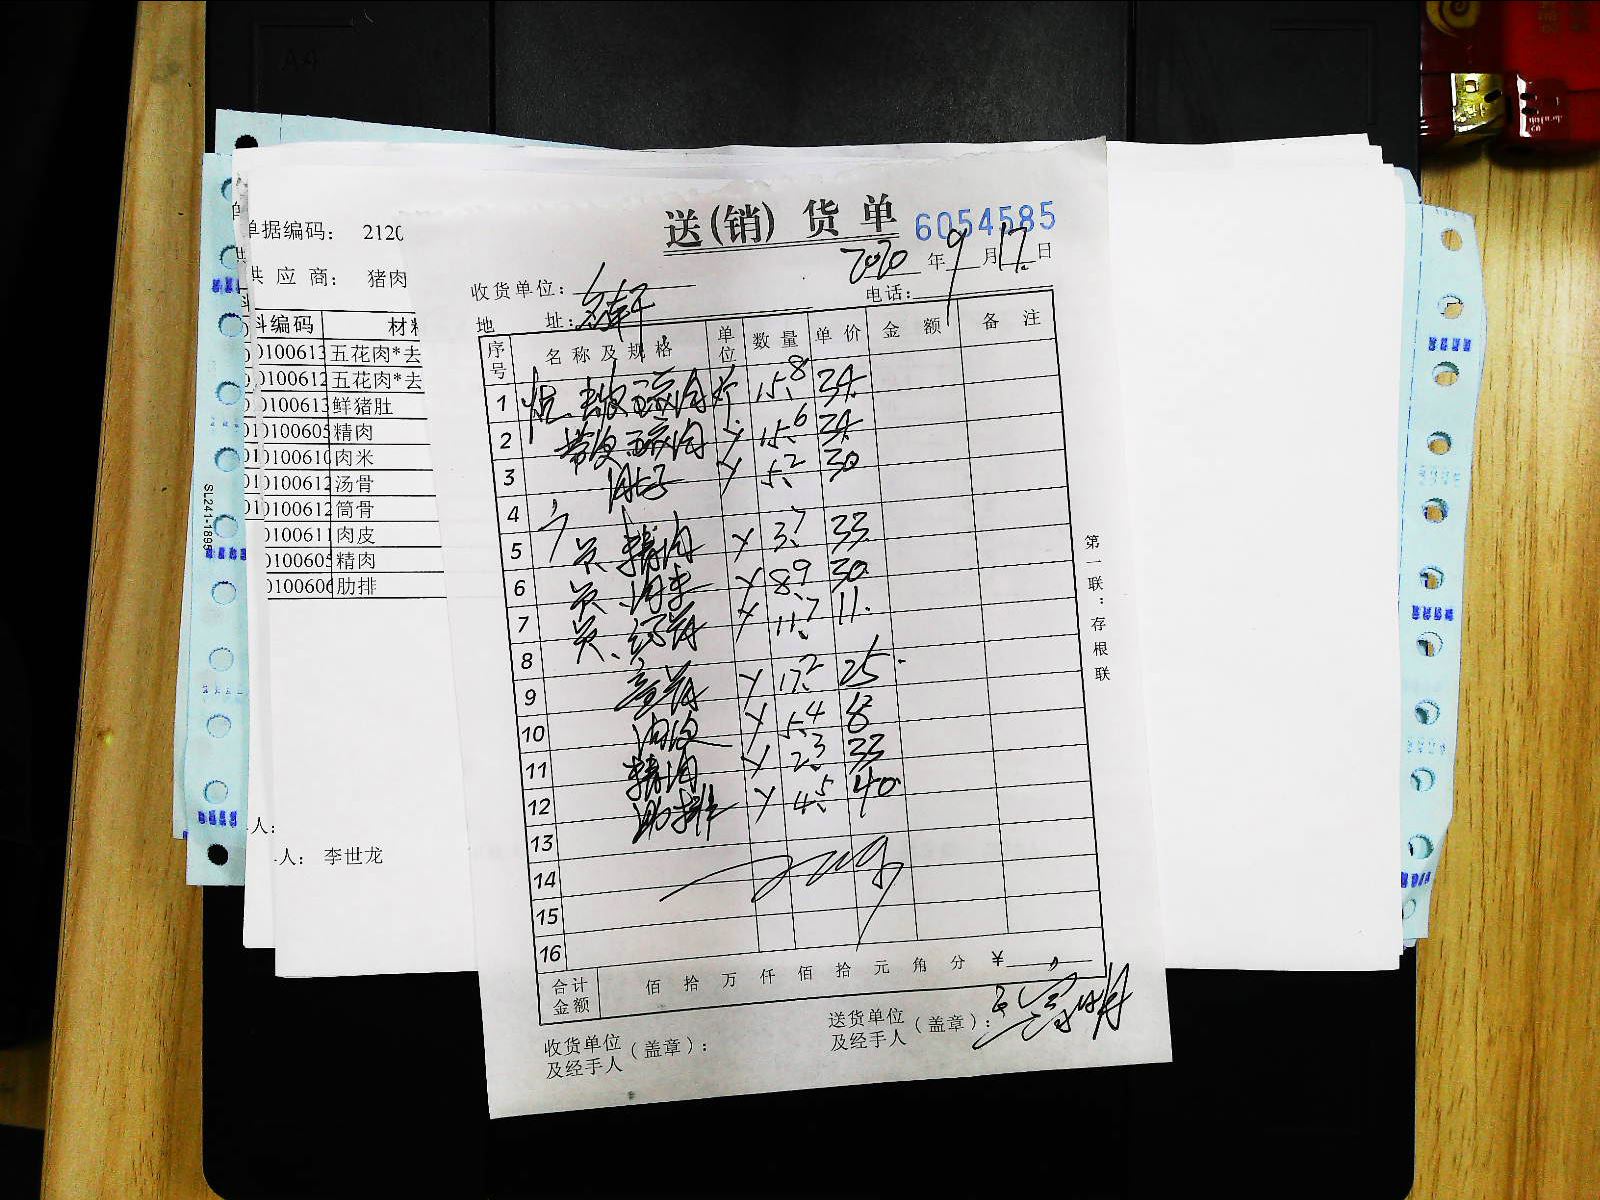 送(销)货单 6054585
2020年9月17日
收货单位:
地 址: 电话:
序号 名称及规格 单位 数量 单价 金额 备注
1 去皮五花肉 斤 15.8 34.
2 带皮五花肉 15.6 34.
3 肚子 5.2 30
4
5 员、精肉 3.7 33
6 员、肉米 8.9 30
7 员、汤骨 11.7 11.
8
9 筒骨 17.2 25.
10 肉皮 5.4 8
11 精肉 2.3 33
12 肋排 4.5 40.
13
14
15
16
合计金额 佰 拾 万 仟 佰 拾 元 角 分 ¥
收货单位及经手人(盖章): 送货单位及经手人(盖章):
第一联:存根联
单据编码: 2120
供应商: 猪肉
编码 材
0100613 五花肉*去
0100612 五花肉*去
0100613 鲜猪肚
0100605 精肉
0100610 肉米
0100612 汤骨
0100612 筒骨
0100611 肉皮
0100605 精肉
0100606 肋排
人:
人: 李世龙
SL241-1895
A4